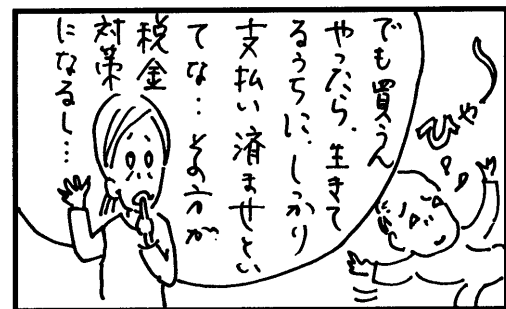 でも買うん
やったら、生きて
るうちに、しっかり
支払い済ませとい
てな…その方が
税金
対策
になるし…
ひゃ〜!!